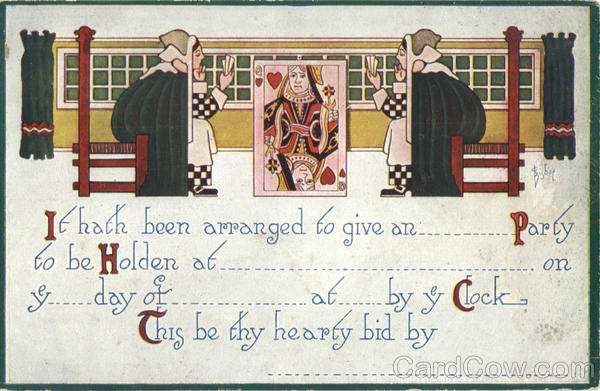 It hath been arranged to give an .......... Party
to be Holden at .......... on
y .... day of .......... at .... by y Clock
This be thy hearty bid by
CardCow.com